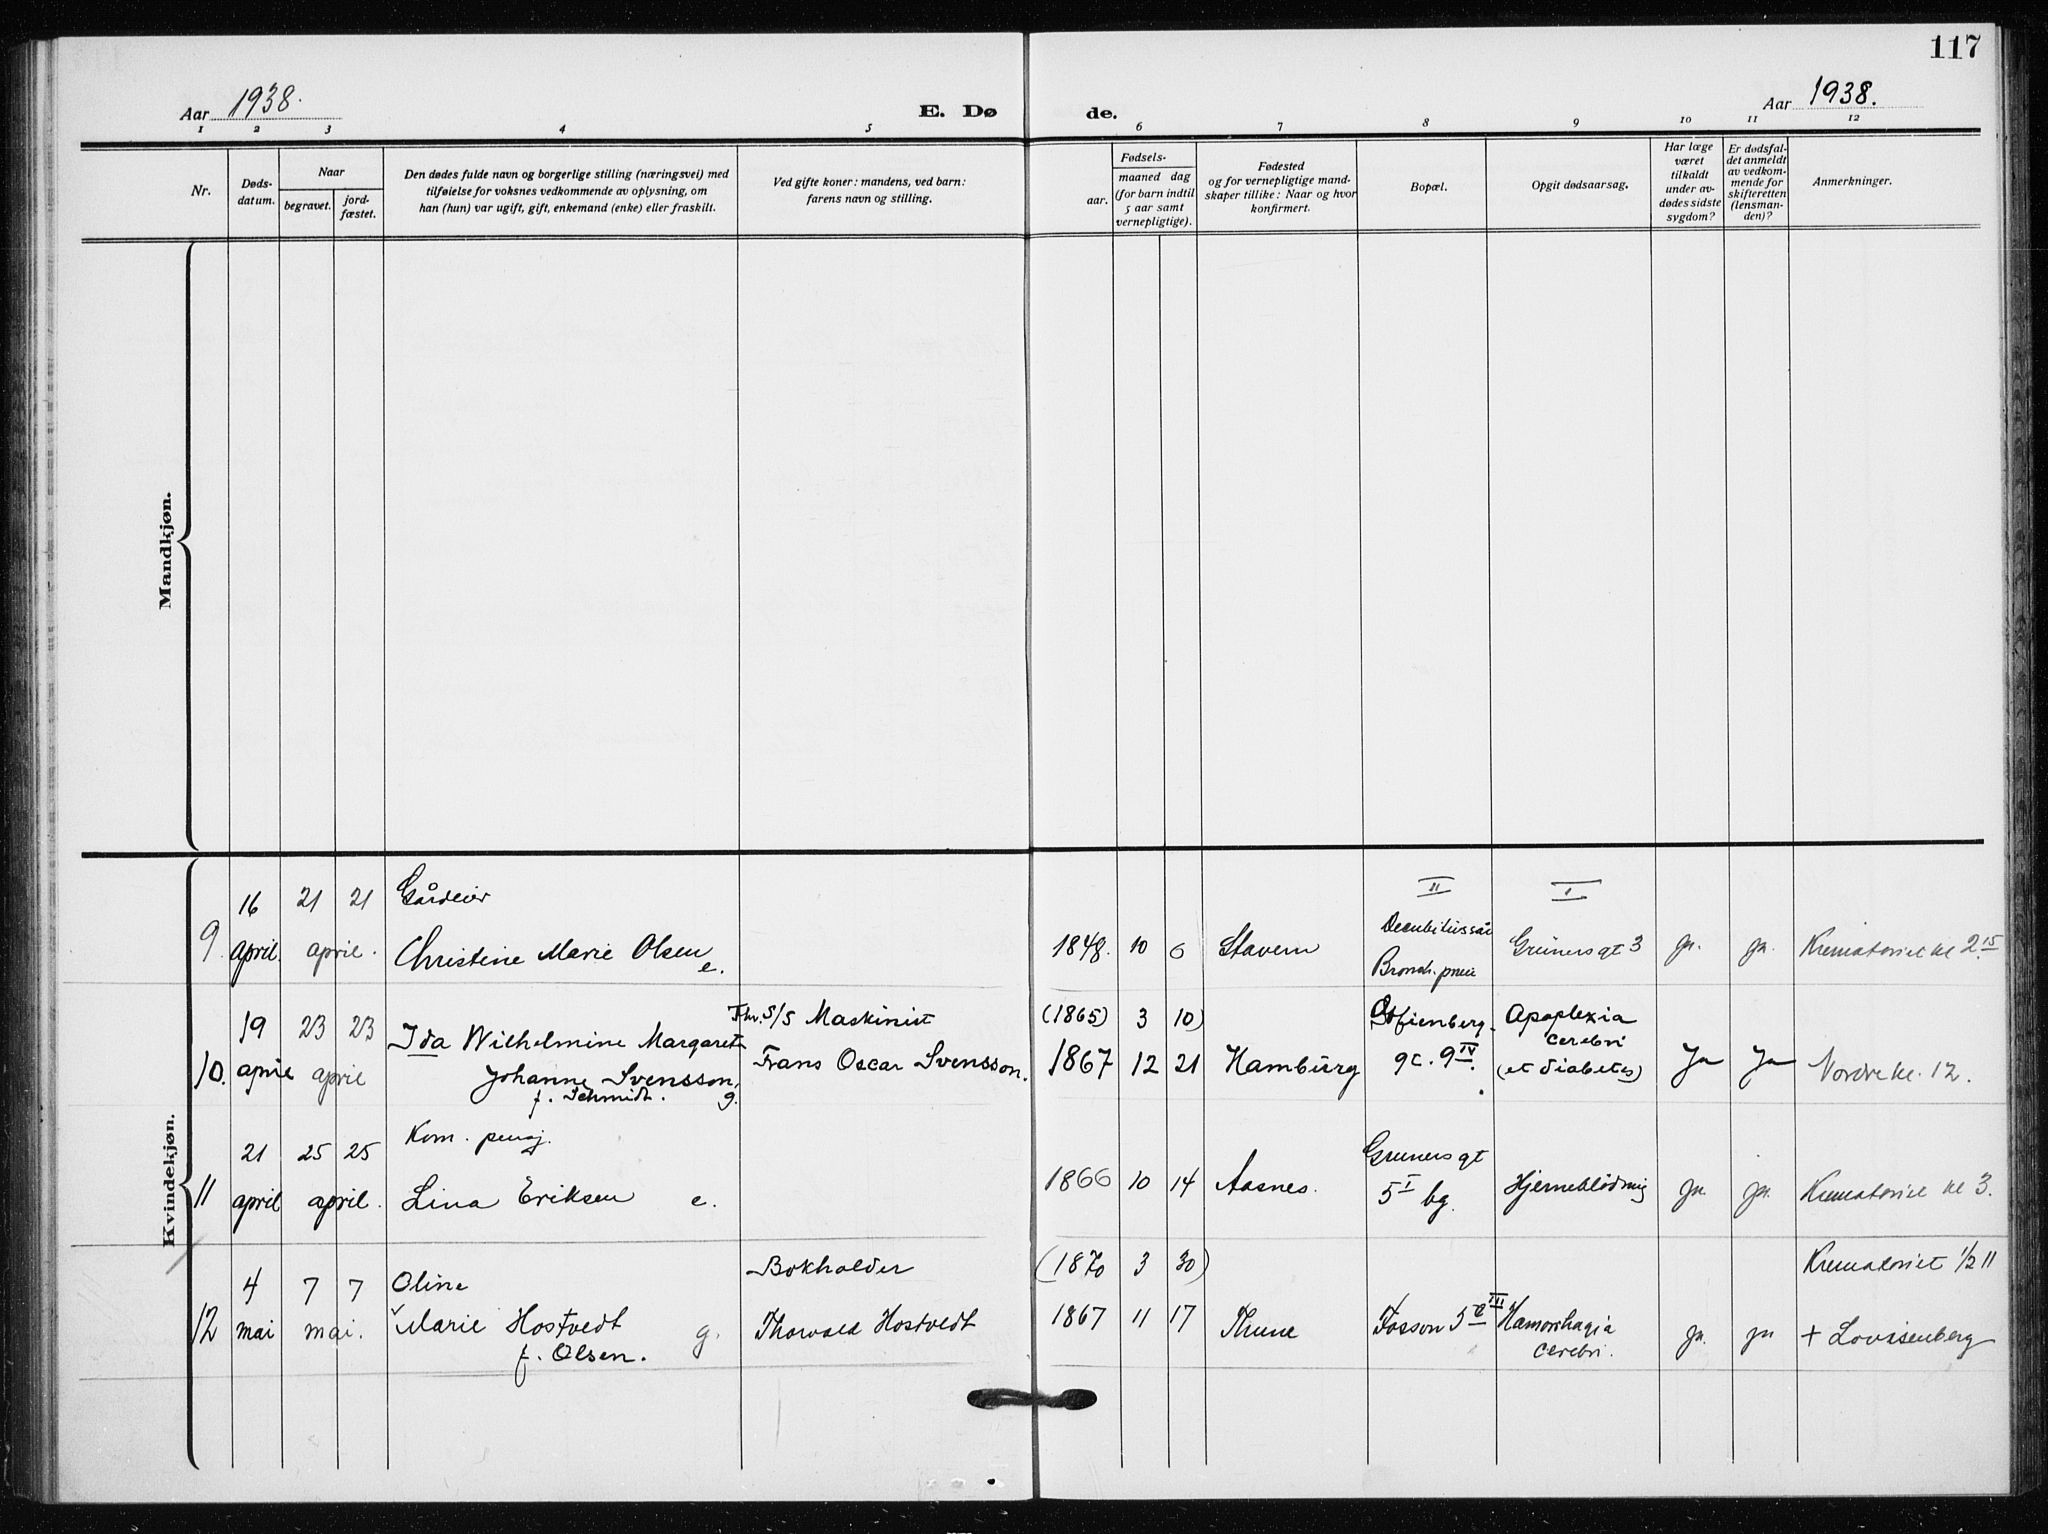 117
Aar 1938.
E. Dø
de.
Aar 1938.
1 2 3 4 5 6 7 8 9 10 11 12
Nr.
Døds-
datum.
Naar
begravet.
jord-
fæstet.
Den dødes fulde navn og borgerlige stilling (næringsvei) med
tilføielse for voksnes vedkommende av oplysning, om
han (hun) var ugift, gift, enkemand (enke) eller fraskilt.
Ved gifte koner: mandens, ved barn:
farens navn og stilling.
Fødsels-
aar.
maaned dag
(for barn indtil
5 aar samt
vernepligtige).
Fødested
og for vernepligtige mand-
skaper tillike: Naar og hvor
konfirmert.
Bopæl.
Opgit dødsaarsag.
Har læge
været
tilkaldt
under av-
dødes sidste
sygdom?
Er dødsfal-
det anmeldt
av vedkom-
mende for
skifteretten
(lensman-
den)?
Anmerkninger.
Mandkjøn.
Kvindekjøn.
16 21 21 Gårdeier II I
9. april. april. Christine Marie Olsen e. 1848. 10 6 Stavern Decubitussår Grünersgt 3 ja. ja. Krematoriet kl 2.15
Bronch. pneu
19 23 23 Fhv. S/S Maskinist (1865) 3 10) Sofienberg- Apoplexia
Ida Wilhelmine Margarete cerebri
10. april april Johanne Svensson, Frans Oscar Svensson. 1867 12 21 Hamburg gc. 9 IV. (et diabetes) Ja Ja Nordre kl. 12.
f. Schmidt. g.
21 25 25 Kom. pensj. Gruners gt
11 april april. Lina Eriksen e. 1866 10 14 Aasnes. 5 I bg. Hjerneblödning ja. ja. Krematoriet kl 3.
4 7 7 Oline Bokholder (1870 3 30) Krematoriet 1/2 11
12 mai mai. Marie Hostvedt g. Thorvald Hostvedt 1867 11 17 Thune Fosson 5 c III Hæmorrhagia ja. ja + Lovisenberg
f. Olsen. cerebri.